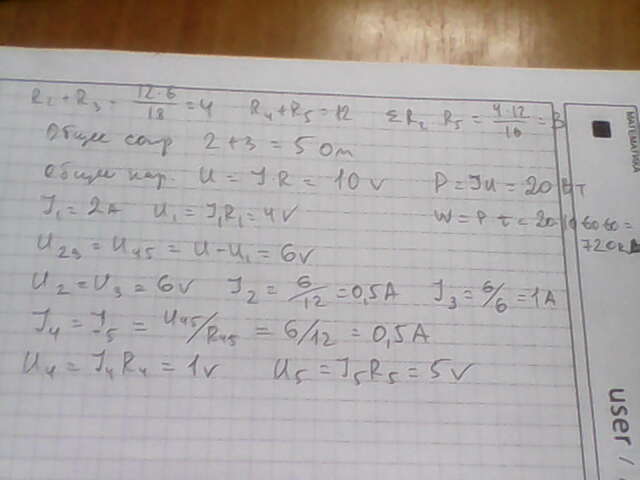 R₂+R₃ = 12·6/18 = 4 R₄+R₅=12 ΣR₂ R₅ = 4·12/16 = 3
Общее сопр 2+3=5 Ом
Общее нар. U = JR = 10 V P=JU=20 Вт
J₁=2A U₁=J₁R₁=4V W=Pt=20·10·60·60=
720к
U₂₃=U₄₅=U-U₁=6V
U₂=U₃=6V J₂=6/12=0,5A J₃=6/6=1A
J₄=J₅=U₄₅/R₄₅=6/12=0,5A
U₄=J₄R₄=1V U₅=J₅R₅=5V
МАТЕМАТИКА
user /